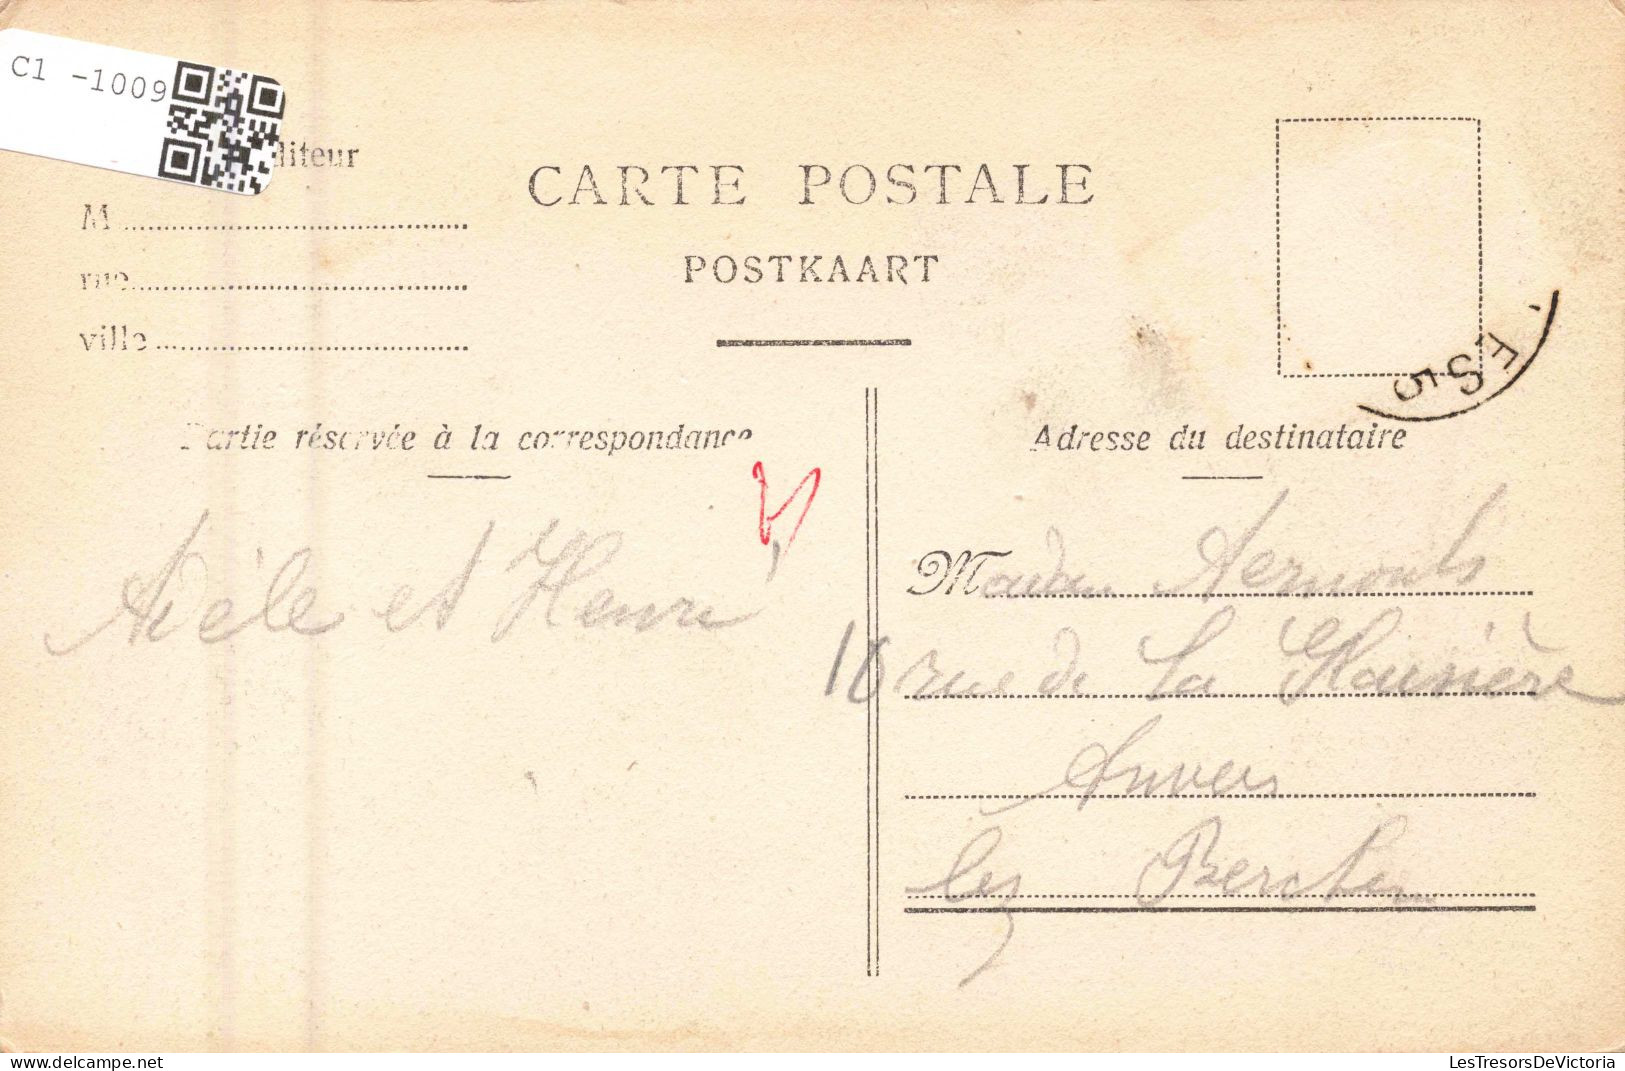 C1 -1009
diteur
CARTE POSTALE
POSTKAART
M
rue
ville
ES5
Partie réservée à la correspondance
Adresse du destinataire
Adèle et Henri
Madame Aernouts
16 rue de La
Anvers
lez Berchem
LesTresorsDeVictoria